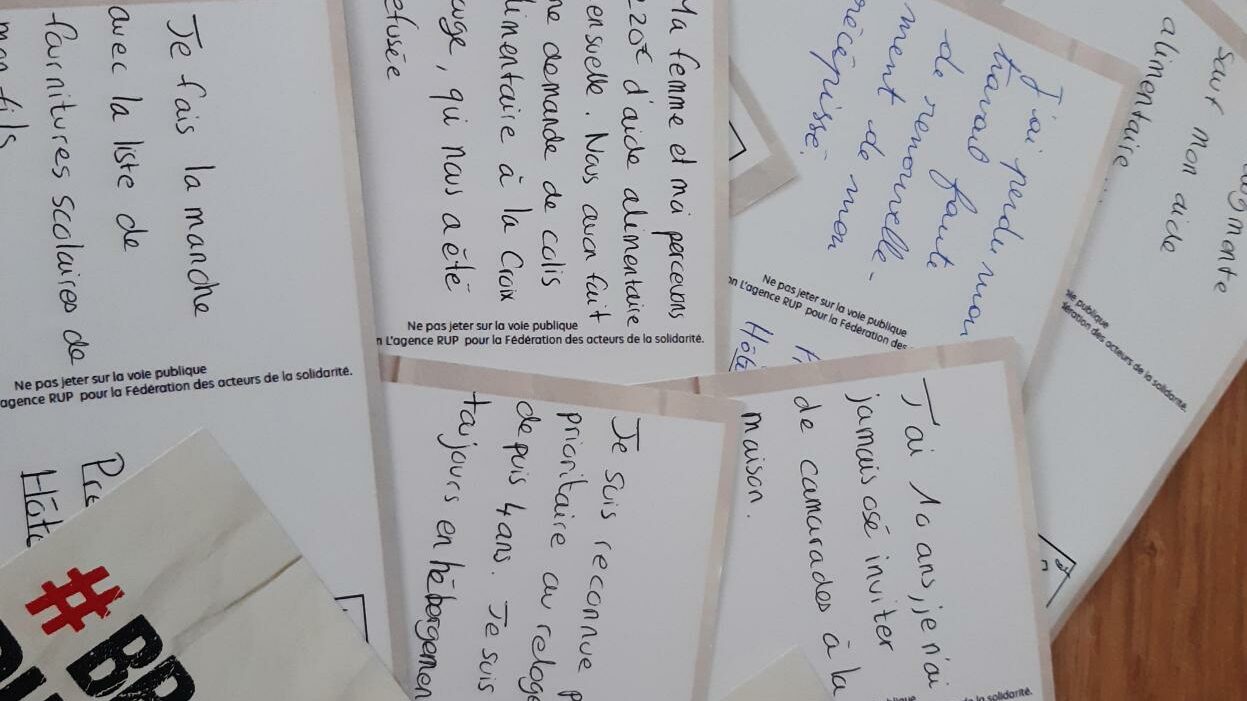 Je fais la manche
avec la liste de
fournitures scolaires de
mon fils
Ne pas jeter sur la voie publique
agence RUP pour la Fédération des acteurs de la solidarité.
Ma femme et moi percevons
220€ d'aide alimentaire
ensuelle. Nous avon fait
ne demande de colis
limentaire à la Croix
uge, qui nous a été
efusée
Ne pas jeter sur la voie publique
n L'agence RUP pour la Fédération des acteurs de la solidarité.
J'ai perdu mon
travail faute
de renouvelle-
ment de mon
récépissé.
Ne pas jeter sur la voie publique
on L'agence RUP pour la Fédération des
Hôte
ugmente
sur mon aide
alimentaire..
publique
dération des acteurs de la solidarité.
Je suis reconnue p
prioritaire au reloge
depuis 4 ans. Je suis
toujours en hébergemen
J'ai 10 ans, je n'ai
jamais osé inviter
de camarades à la
maison.
la solidarité.
Pre
Hôte
#BR